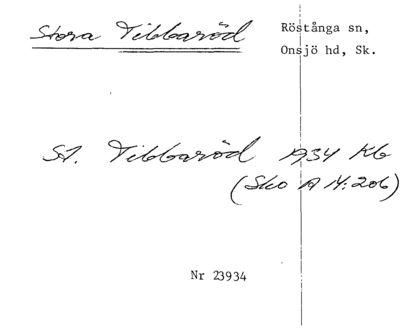 Stora Tibbaröd
Röstånga sn,
Onsjö hd, Sk.
St. Tibbaröd 1934 Kb
(Sko A 14:206)
Nr 23934